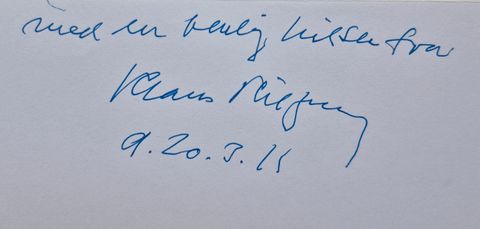 med en venlig hilsen fra
Klaus Rifbjerg
d. 20.3.15